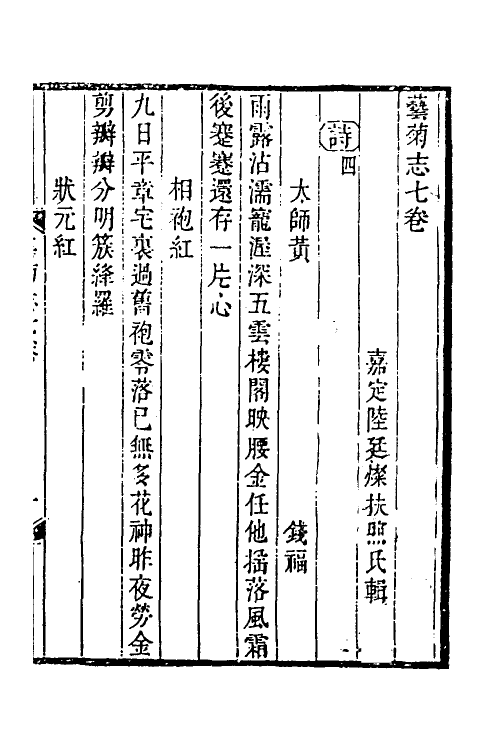 藝菊志七卷
嘉定陸廷燦扶照氏輯
詩四
太師黃　錢福
雨露沾濡寵渥深五雲樓閣映腰金任他搖落風霜
後蹇蹇還存一片心
相袍紅
九日平章宅裏過舊袍零落已無多花神昨夜勞金
剪瓣瓣分明簇絳羅
狀元紅